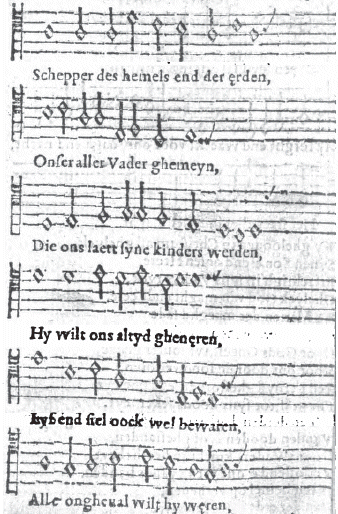 Schepper des hemels end der ęrden,
Onser aller Vader ghemeyn,
Die ons laett syne kinders werden,
Hy wilt ons altyd ghenęren,
Lyf end siel oock wel bewaren,
Alle ongheual wilt hy węren,